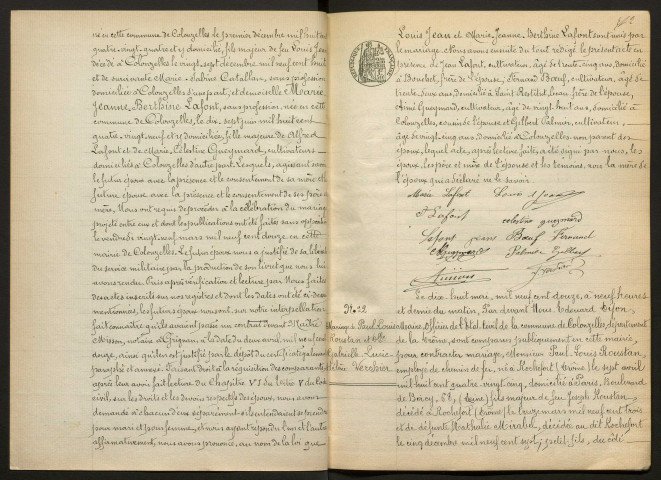 né en cette commune de Colonzelles le premier décembre mil huit cent
quatre-vingt-quatre et y domicilié, fils majeur de feu Louis Jean
décédé à Colonzelles le vingt sept décembre mil neuf cent huit
et de survivante Marie-Sabine Catallan, sans profession
domiciliée à Colonzelles d'une part, et demoiselle Marie
Jeanne Berthine Lafont, sans profession, née en cette
commune de Colonzelles, le dix-sept juin mil huit cent
quatre-vingt-neuf et y domiciliée, fille majeure de Alfred
Lafont et de Marie Célestine Gueymard, cultivateurs
domiciliés à Colonzelles d'autre part. Lesquels, agissant savoir
le futur époux avec la présence et le consentement de sa mère et la
future épouse avec la présence et le consentement de ses père et
mère, Nous ont requis de procéder à la célébration du mariage
projeté entre eux et dont les publications ont été faites sans opposition
le vendredi vingt-neuf mars mil neuf cent douze en cette
mairie de Colonzelles. Le futur époux nous a justifié de sa libération
du service militaire par la production de son livret que nous lui
avons rendu. Puis après vérification et lecture par Nous faites
des actes inscrits sur nos registres et dont les dates ont été ci-dessus
mentionnées, les futurs époux nous ont, sur notre interpellation
fait connaître qu'ils avaient passé un contrat devant Maître
Misson, notaire à Grignan, à la date du deux avril mil neuf cent
douze, ainsi qu'il en est justifié par le dépôt du certificat également
paraphé et annexé. Faisant droit à la réquisition des comparants
après leur avoir fait lecture du Chapitre VI du titre V du Code
civil, sur les droits et les devoirs respectifs des époux, nous avons
demandé à chacun d'eux séparément s'ils entendaient se prendre
pour mari et pour femme, et nous ayant répondu l'un et l'autre
affirmativement, nous avons prononcé, au nom de la loi que
Louis Jean et Marie-Jeanne-Berthine Lafont sont unis par
le mariage. Nous avons ensuite du tout rédigé le présent acte en
présence de Jean Lafont, cultivateur, âgé de trente-cinq ans, domicilié
à Bouchet, frère de l'épouse, Fernand Bœuf, cultivateur, âgé de
trente-deux ans, domicilié à Saint Restitut, beau-frère de l'épouse,
Aimé Gueymard, cultivateur, âgé de vingt-huit ans, domicilié à
Colonzelles, cousin de l'épouse et Gilbert Palmier, cultivateur,
âgé de vingt-cinq ans, domicilié à Colonzelles non parent des
époux, lequel acte, après lecture faite, a été signé par nous, les
époux, les père et mère de l'épouse et les témoins, non la mère de
l'époux qui a déclaré ne le savoir.
Marie Lafont Louis Jean
Lafont célestine gueymard
Lafont jean Bœuf Fernand
Gueymard Palmier Gilbert
N: 22
Mariage de Paul Louis
Roustan et de
Gabrielle Lucie
Le dix-huit mai, mil neuf cent douze, à neuf heures
et demie du matin, Par devant Nous Edouard
Officier de l'état civil de la commune de Colonzelles, département
de la Drôme, sont comparus publiquement en cette mairie,
pour contracter mariage, Monsieur Paul-Louis Roustan,
employé de chemin de fer, né à Rochefort (Drôme) le sept avril
mil huit cent quatre-vingt-cinq, domicilié à Paris, Boulevard
de Bercy, 62, (Seine) fils majeur de feu Joseph Roustan
décédé à Rochefort (Drôme) le treize mars mil neuf cent trois
et de défunte Nathalie Mirabel, décédée au dit Rochefort
le cinq décembre mil neuf cent sept; petit-fils, du côté